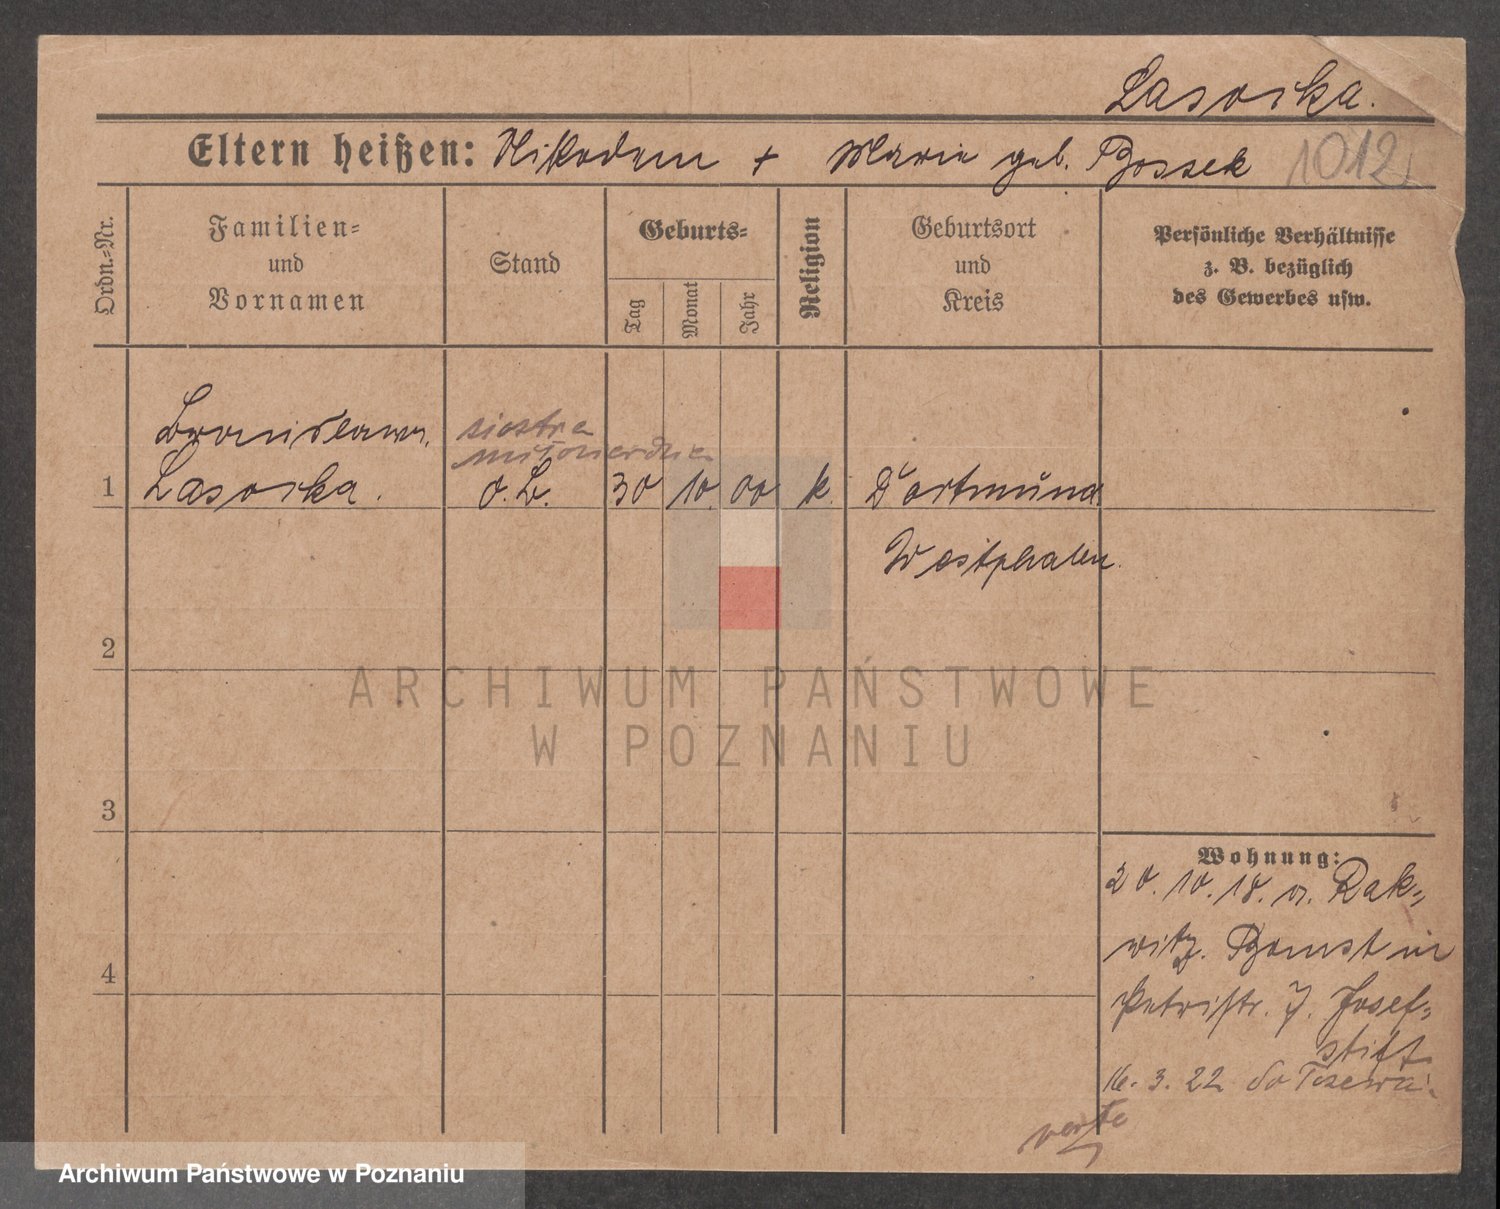 Lasoska.
Eltern heißen: Nikodem + Marie geb. Bossek 1012
Ordn.=Nr.
Familien=
und
Vornamen
Stand
Geburts=
Tag
Monat
Jahr
Religion
Geburtsort
und
Kreis
Persönliche Verhältnisse
z. B. bezüglich
des Gewerbes usw.
Bronislawa
siostra
miłosierdzia
1 Lasoska. o. B. 30 10. 00 k. Dortmund
Westphalen.
2
ARCHIWUM PAŃSTWOWE
W POZNANIU
3
Wohnung:
20. 10. 18. a. Rak=
witz. Bomst in
4
Petristr. 7. Josef=
stift
16. 3. 22 do Tczewa.
verte
Archiwum Państwowe w Poznaniu